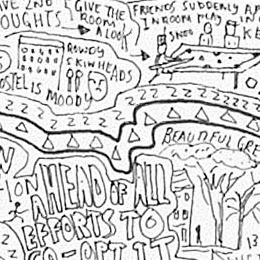 AVE 2ND
OUGHTS
GIVE THE
ROOM
A LOOK
FRIENDS SUDDENLY AP
IN ROOM PLAY
SNOO
KE
ROWDY
SKINHEADS
HOSTEL IS MOODY
ZZZZZZZ
BEAUTIFUL GRE
ION
AHEAD OF ALL
EFFORTS TO
CO-OPT IT
13